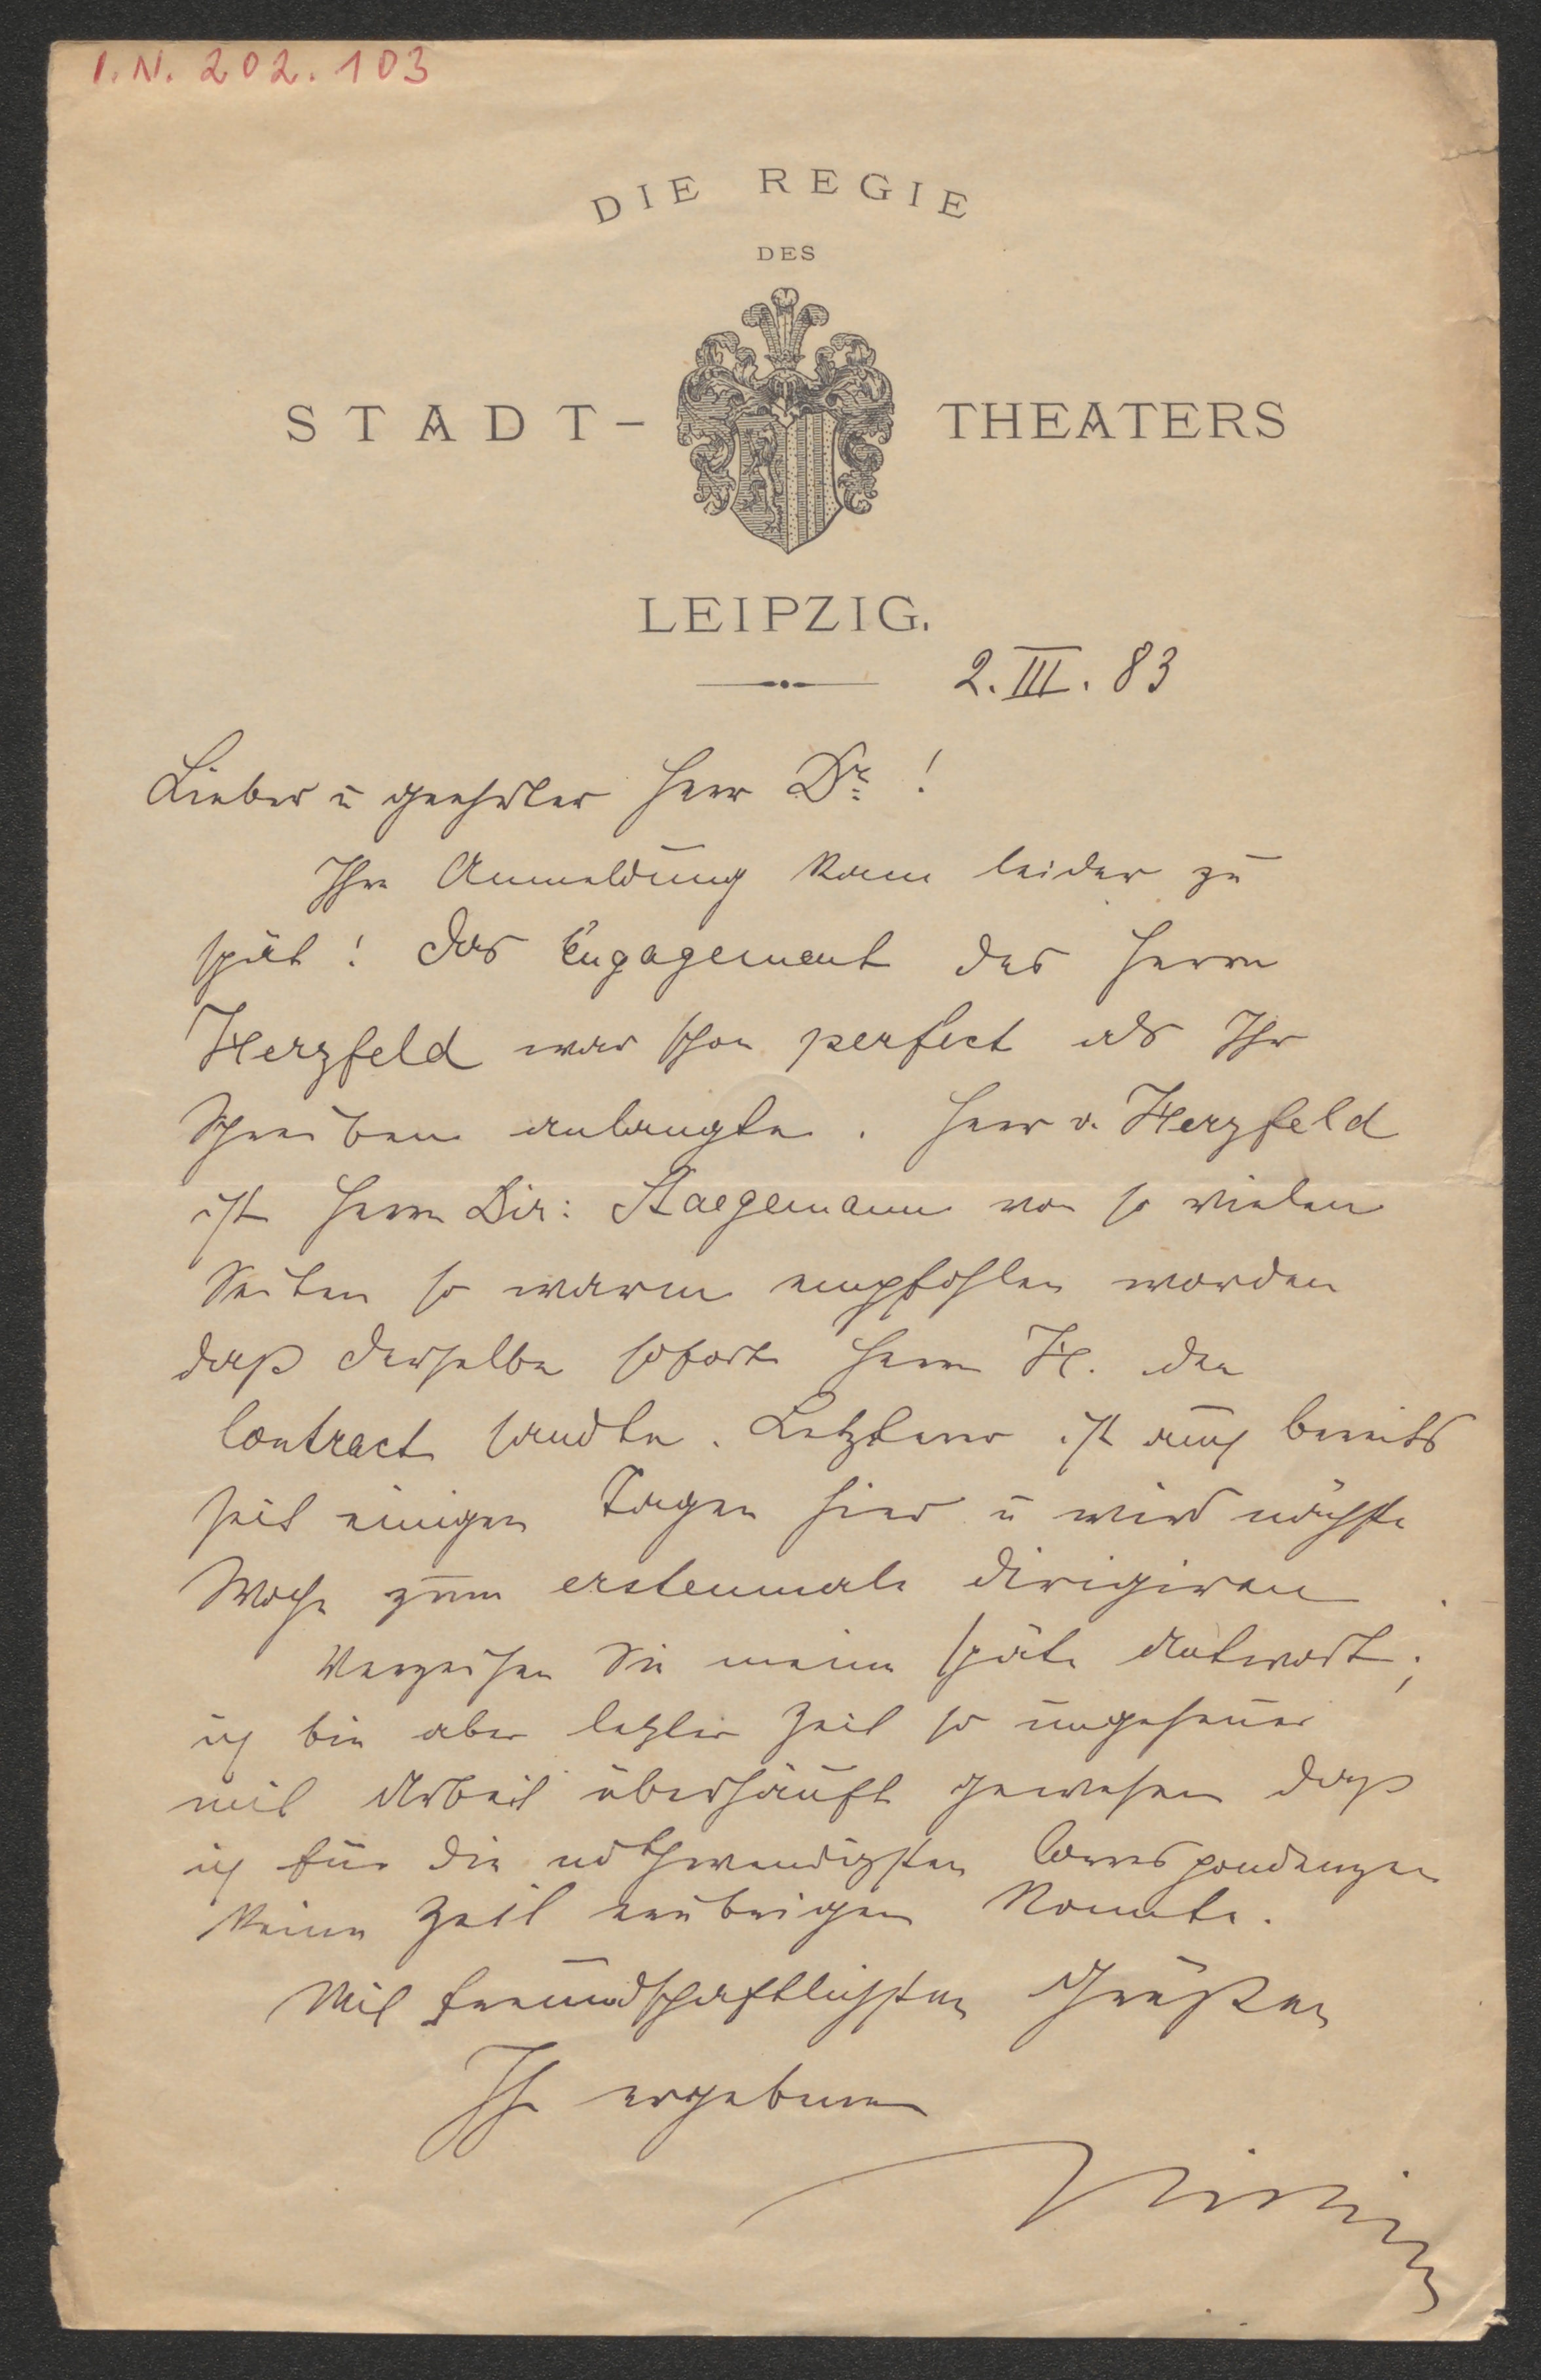 I. N. 202.103
DIE REGIE
DES
STADT- THEATERS
LEIPZIG.
2. III. 83
Lieber u geehrter Herr Dr. !
Ihre Anmeldung kam leider zu
spät! Das Engagement des Herrn
Herzfeld war schon perfect als Ihr
Schreiben anlangte. Herr v. Herzfeld
ist Herrn Dir: Staegemann von so vielen
Seiten so warm empfohlen worden
daß derselbe sofort Herrn H. den
Contract sandte. Letzterer ist auch bereits
seit einigen Tagen hier u wird nächste
Woche zum erstenmale dirigiren.
Verzeihen Sie meine späte Antwort;
ich bin aber letzter Zeit so ungeheuer
mit Arbeit überhäuft gewesen daß
ich für die nothwendigsten Correspondenzen
keine Zeit erübrigen konnte.
Mit freundschaftlichsten Grüßen
Ihr ergebener